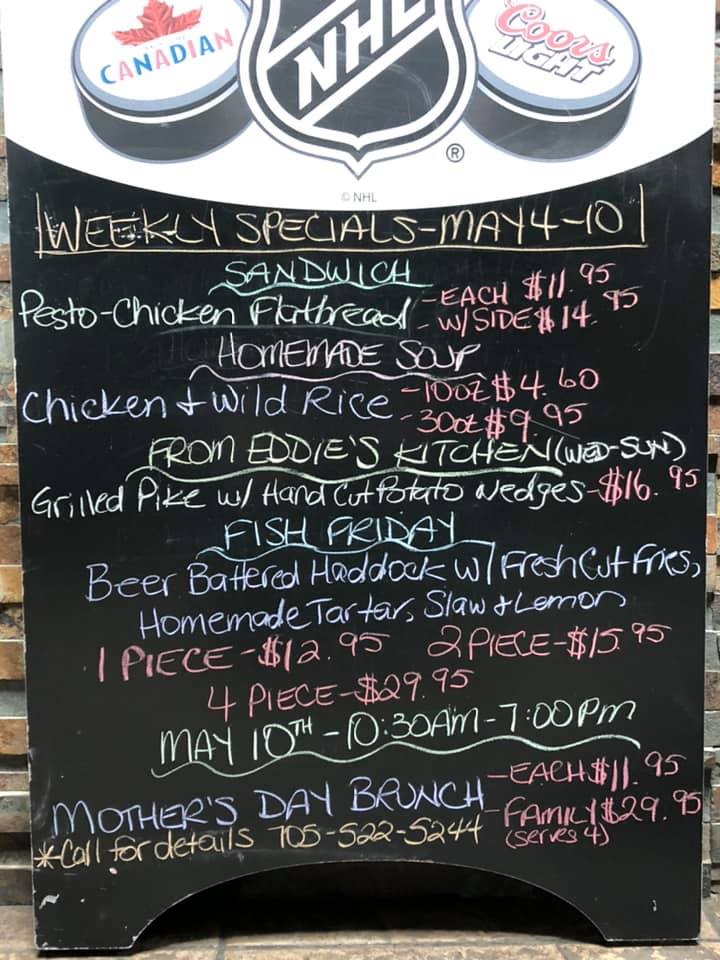 CANADIAN
NHL
Coors
LIGHT
®
© NHL
WEEKLY SPECIALS-MAY 4-10
SANDWICH
Pesto-Chicken Flatbread -EACH $11.95
- W/SIDE $14.95
HOMEMADE SOUP
Chicken & Wild Rice -10oz $4.60
-30oz $9.95
FROM EDDIE'S KITCHEN (WED-SUN)
Grilled Pike w/ Hand Cut Potato Wedges-$16.95
FISH FRIDAY
Beer Battered Haddock w/ Fresh Cut Fries,
Homemade Tartar, Slaw & Lemon
1 PIECE-$12.95 2 PIECE-$15.95
4 PIECE-$29.95
MAY 10TH - 10:30AM-7:00PM
MOTHER'S DAY BRUNCH -EACH $11.95
-FAMILY $29.95
(serves 4)
*Call for details 705-522-5244